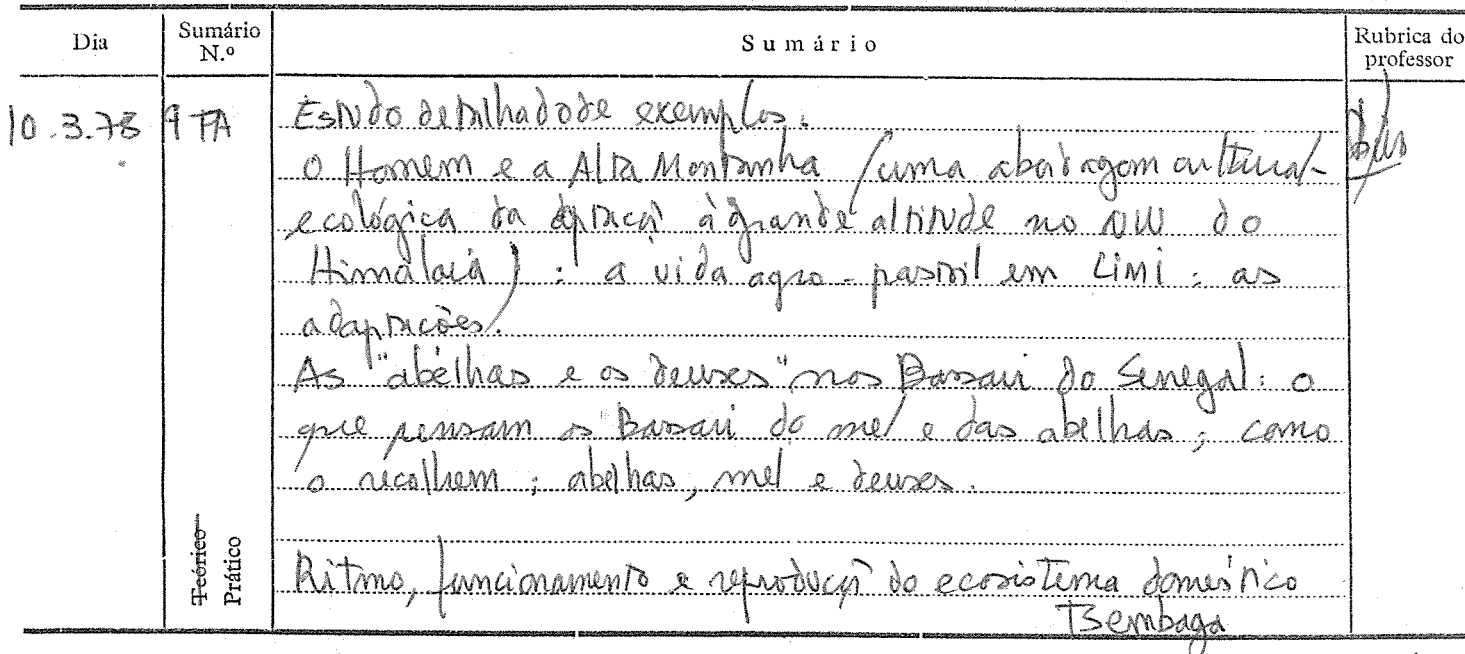 Dia
Sumário N.º
Sumário
Rubrica do professor
10.3.78
9 TA
Estudo detalhado de exemplos.
O Homem e a Alta Montanha (uma abordagem cultural-
ecológica da à grande altitude no NW do
Himalaia) : a vida agro-pastoril em Limi : as
adaptações.
As "abelhas e os deuses" nos Bassari do Senegal : o
que pensam os Bassari do mel e das abelhas ; como
o recolhem ; abelhas, mel e deuses.
Teórico
Prático
Ritmo, funcionamento e reproduçã do ecosistema doméstico
Tsembaga